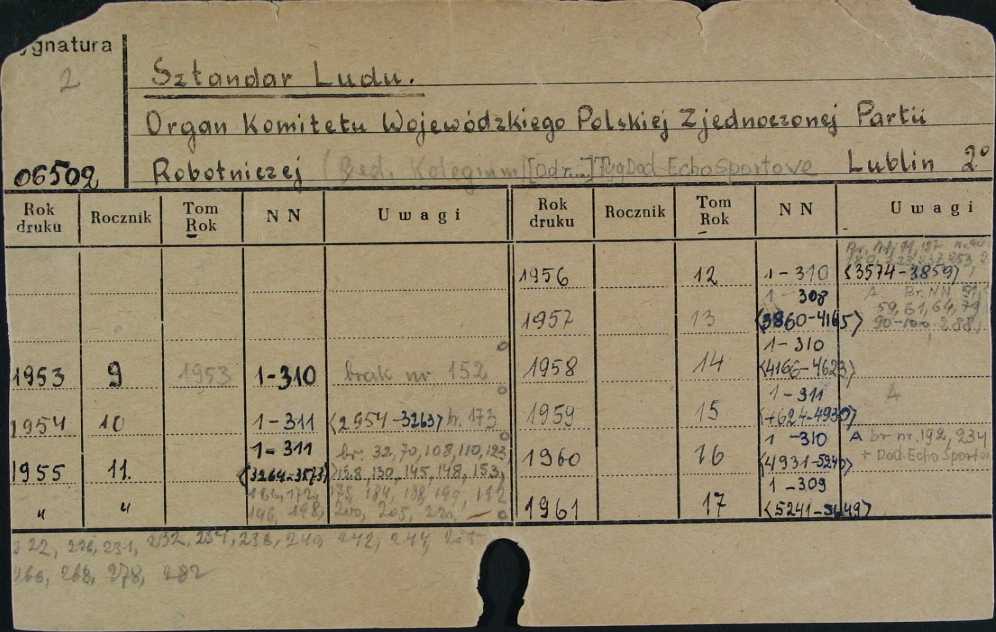 ygnatura
2
Sztandar Ludu.
Organ Komitetu Wojewódzkiego Polskiej Zjednoczonej Partii
06502 Robotniczej (Red. Kolegium) Lublin 2°
Rok druku Rocznik Tom Rok NN Uwagi Rok druku Rocznik Tom Rok NN Uwagi
1956 12 1-310 <3574-3859>
1957 13 1-308 <3860-4165> A Br. NN 59, 61, 64, 79
1953 9 1953 1-310 brak nr 152
1958 14 1-310
1954 10 1-311 <2954-3263> b. 173
1959 15 1-311 <4624-4930> A
1955 11. 1-311 <3264-3573> br. 32, 70, 108, 110, 123, 128, 130, 145, 148, 153,
1960 16 1-310 <4931-5240> A br nr 192, 234 + Dod. Echo Sportow
" " 198, 200, 205, 220,
1961 17 1-309
222, 226, 231, 232, 234, 238, 240, 242, 244,
268, 278, 282